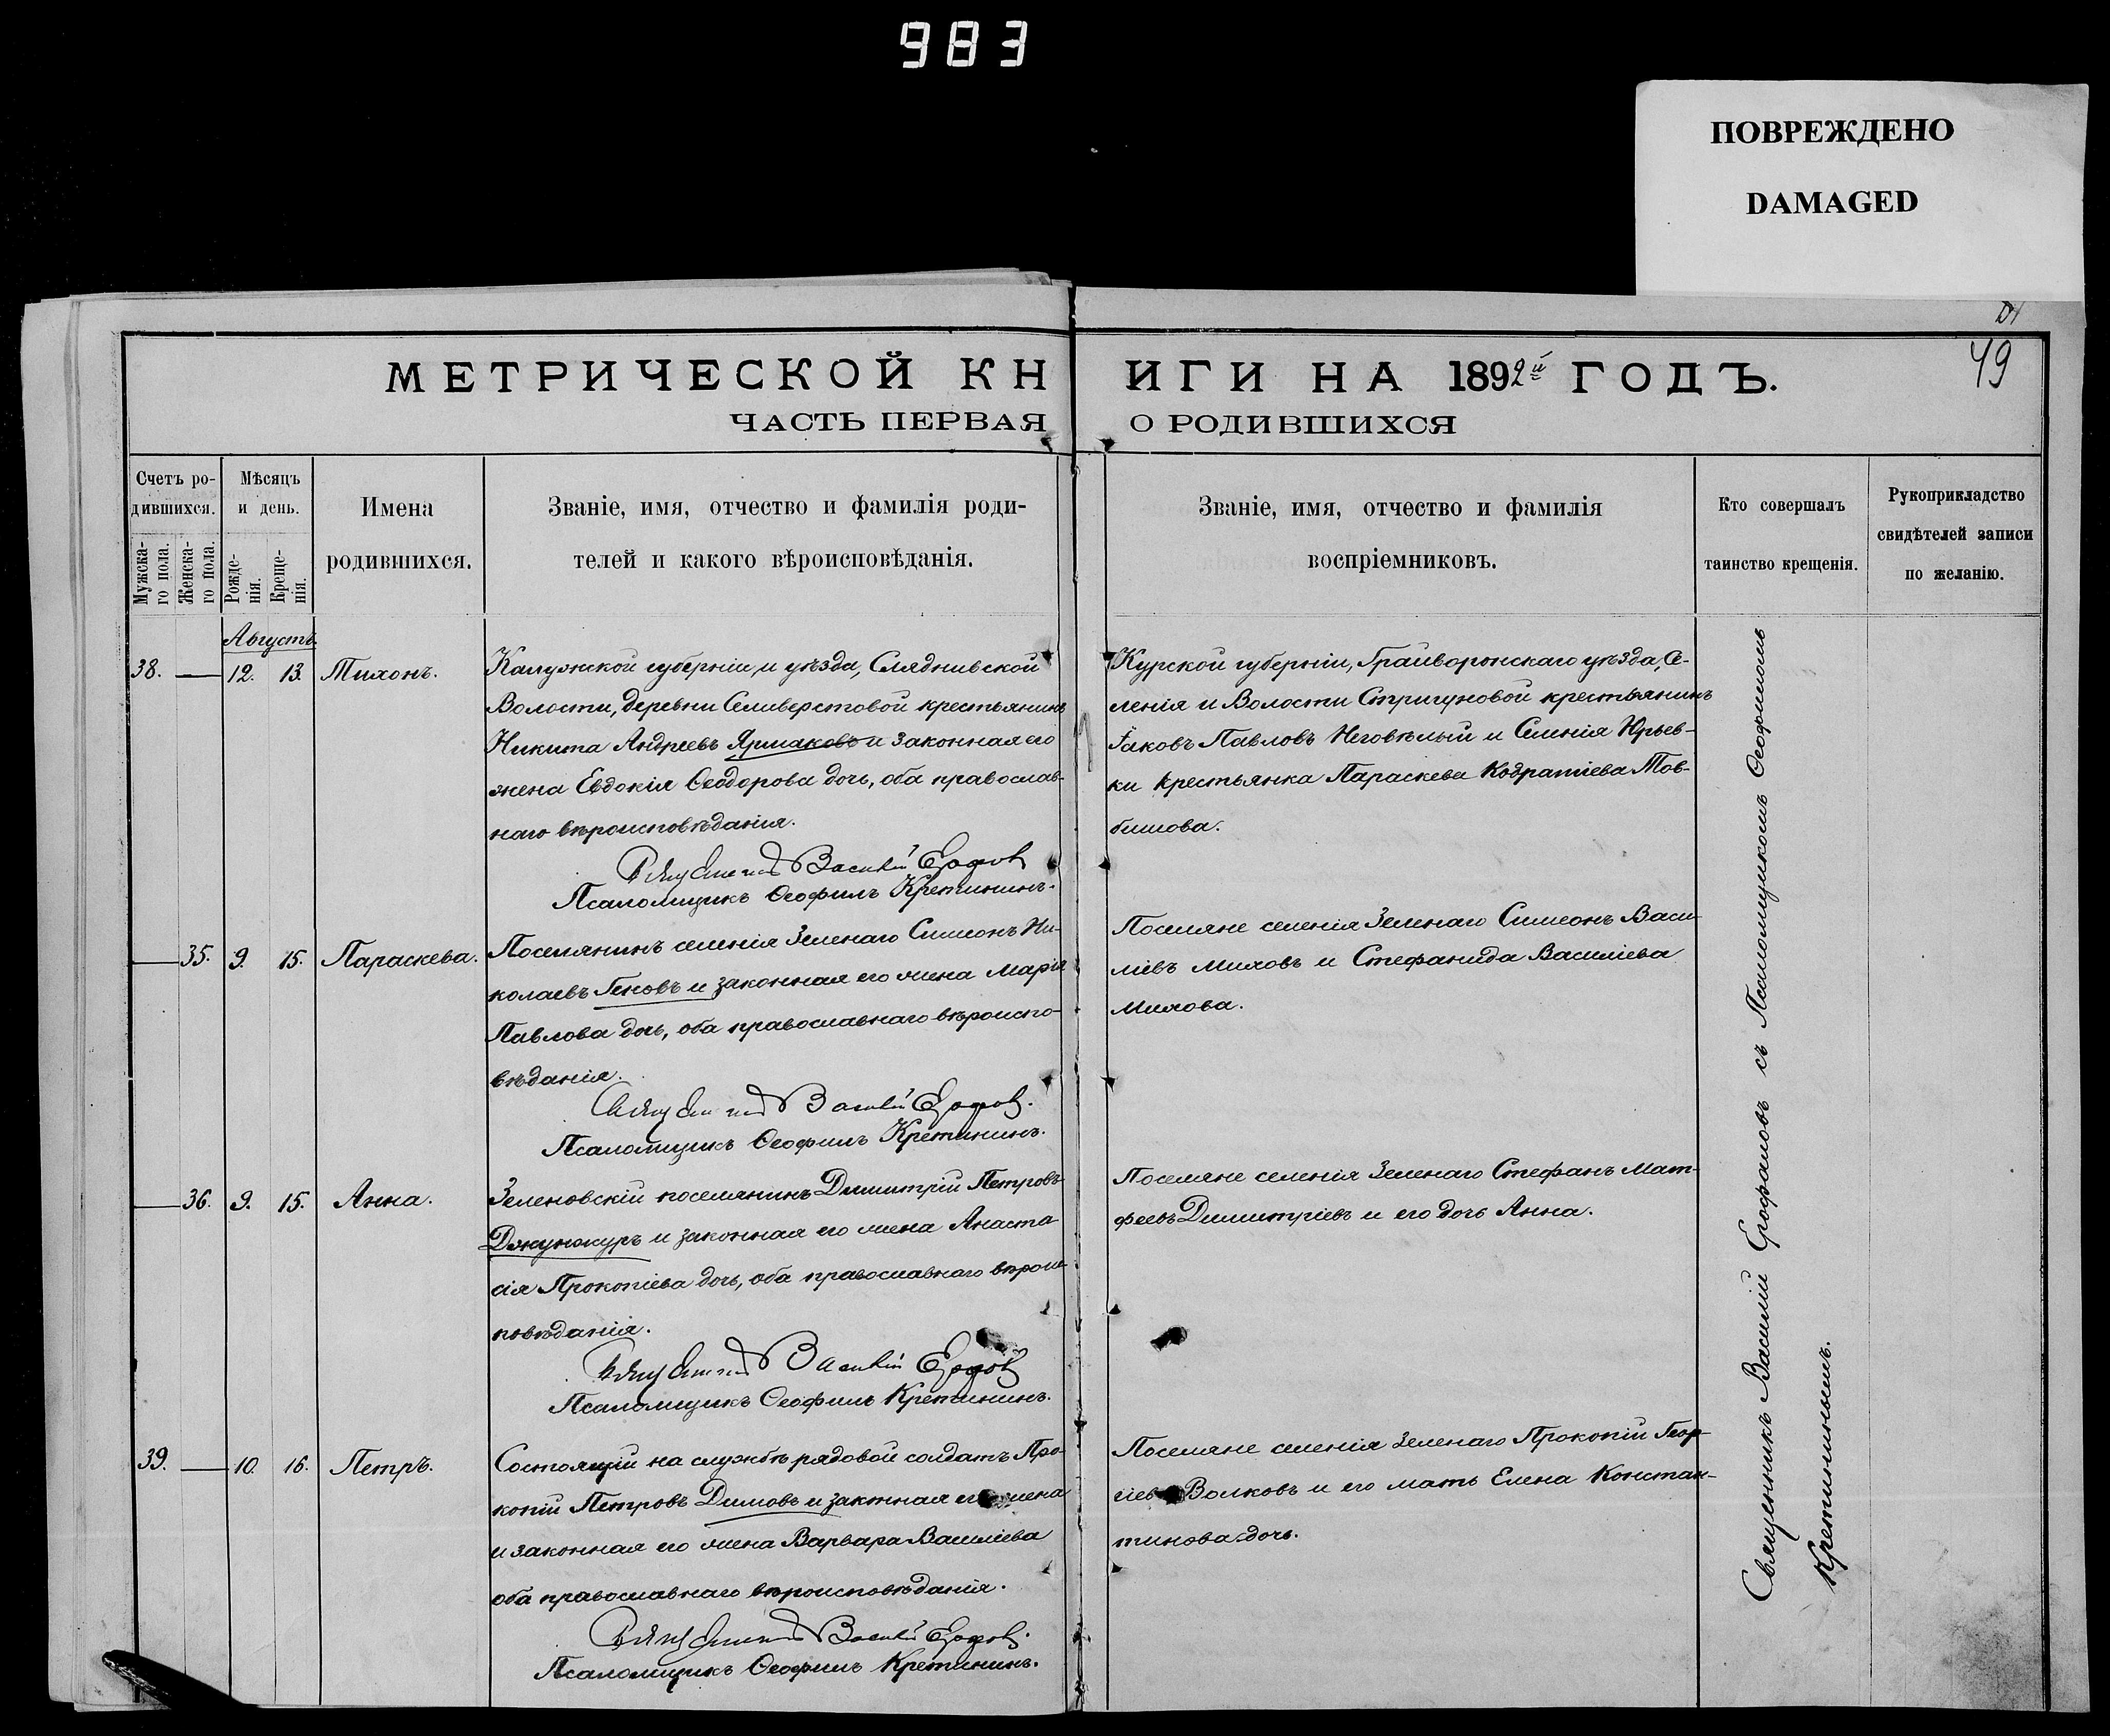 983
ПОВРЕЖДЕНО
DAMAGED
49
МЕТРИЧЕСКОЙ КНИГИ НА 1892й ГОДЪ.
ЧАСТЬ ПЕРВАЯ О РОДИВШИХСЯ
Счетъ ро-
дившихся.
Мужска-
го пола.
Женска-
го пола.
Мѣсяцъ
и день.
Рожде-
нія.
Креще-
нія.
Имена
родившихся.
Званіе, имя, отчество и фамилія роди-
телей и какого вѣроисповѣданія.
Званіе, имя, отчество и фамилія
воспріемниковъ.
Кто совершалъ
таинство крещенія.
Рукоприкладство
свидѣтелей записи
по желанію.
Августъ.
38. — 12. 13. Тихонъ.
Калужской губерніи, и уѣзда, Сляднивской
Волости, деревни Селиверстовой крестьянинъ
Никита Андреевъ Ярмаковъ и законная его
жена Евдокія Ѳеодорова дочь, оба православ-
наго вѣроисповѣданія.
Священникъ Василій Ерофаловъ
Псаломщикъ Ѳеофилъ Кретининъ.
Курской губерніи, Грайворонскаго уѣзда, Се-
ленія и Волости Стригуновой крестьянинъ
Іаковъ Павловъ Неговѣлый и Селенія Юрьев-
ки крестьянка Параскева Кодратіева Тов-
бишова.
— 35. 9. 15. Параскева.
Поселянинъ селенія Зеленаго Симеонъ Ни-
колаевъ Геновъ и законная его жена Марія
Павлова дочь, оба православнаго вѣроиспо-
вѣданія.
Священникъ Василій Ерофаловъ.
Псаломщикъ Ѳеофилъ Кретининъ.
Поселяне селенія Зеленаго Симеонъ Васи-
ліевъ Миховъ и Стефанида Василіева
Михова.
— 36. 9. 15. Анна.
Зеленовскій поселянинъ Димитрій Петровъ
Джунжуръ и законная его жена Анаста-
сія Прокопіева дочь, оба православнаго вѣроис-
повѣданія.
Священникъ Василій Ерофаловъ
Псаломщикъ Ѳеофилъ Кретининъ.
Поселяне селенія Зеленаго Стефанъ Мат-
феевъ Димитріевъ и его дочь Анна.
39. — 10. 16. Петръ.
Состоящій на службѣ рядовой солдатъ Про-
копій Петровъ Димовъ и законная его жена
и законная его жена Варвара Василіева
оба православнаго вѣроисповѣданія.
Священникъ Василій Ерофаловъ.
Псаломщикъ Ѳеофилъ Кретининъ.
Поселяне селенія Зеленаго Прокопій Геор-
гіевъ Волковъ и его мать Елена Констан-
тинова дочь.
Священникъ Василій Ерофаловъ съ Псаломщикомъ Ѳеофиломъ
Кретининымъ.